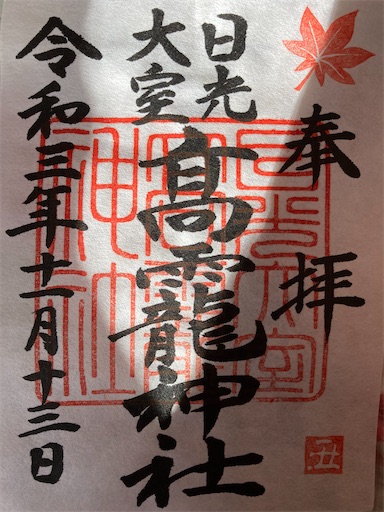 奉拝
日光
大室
高龗神社
令和三年十一月十三日
丑